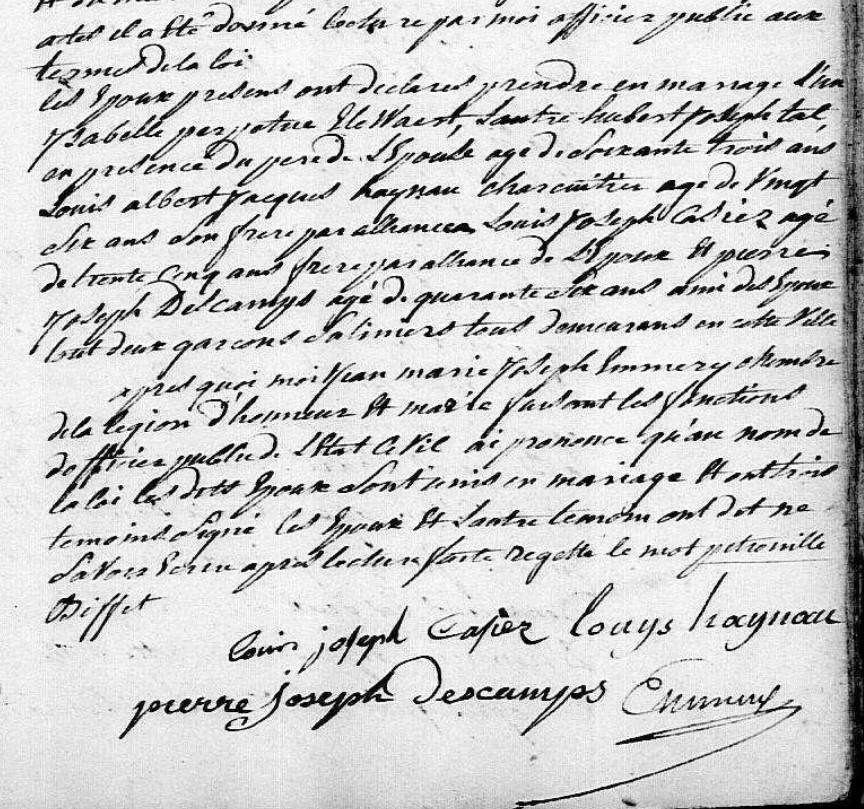 actes il a été donné lecture par moi officier public aux
termes de la loi
les Epoux presens ont declares prendre en mariage L'un
Ysabelle perpetue Elewaert, Lautre hubert Joseph tal,
en presence du pere de L'Epouse age de Soixante trois ans
Louis albert Jacques haynau charcuitier age de Vingt
Six ans Son frere par alliance Louis Joseph Casiez agé
de trente Cinq ans frere par alliance de L'Epoux Et pierre
Joseph Descamps agé de quarante Six ans ami des Epoux
tout deux garcons Saliniers tous demeurans en cette Ville
apres quoi moi Jean marie Joseph Emmery membre
de la legion d'honneur Et maire faisant les fonctions
dofficier public de L'Etat Civil ai prononcé qu'au nom de
la loi les dits Epoux Sont unis en mariage Et ont trois
temoins Signé les Epoux Et Lautre temoin ont dit ne
Savoir Ecrire apres lecture faite regetté le mot petronille
Diffet
louis joseph Casiez louys haynau
pierre joseph Descamps Emmery